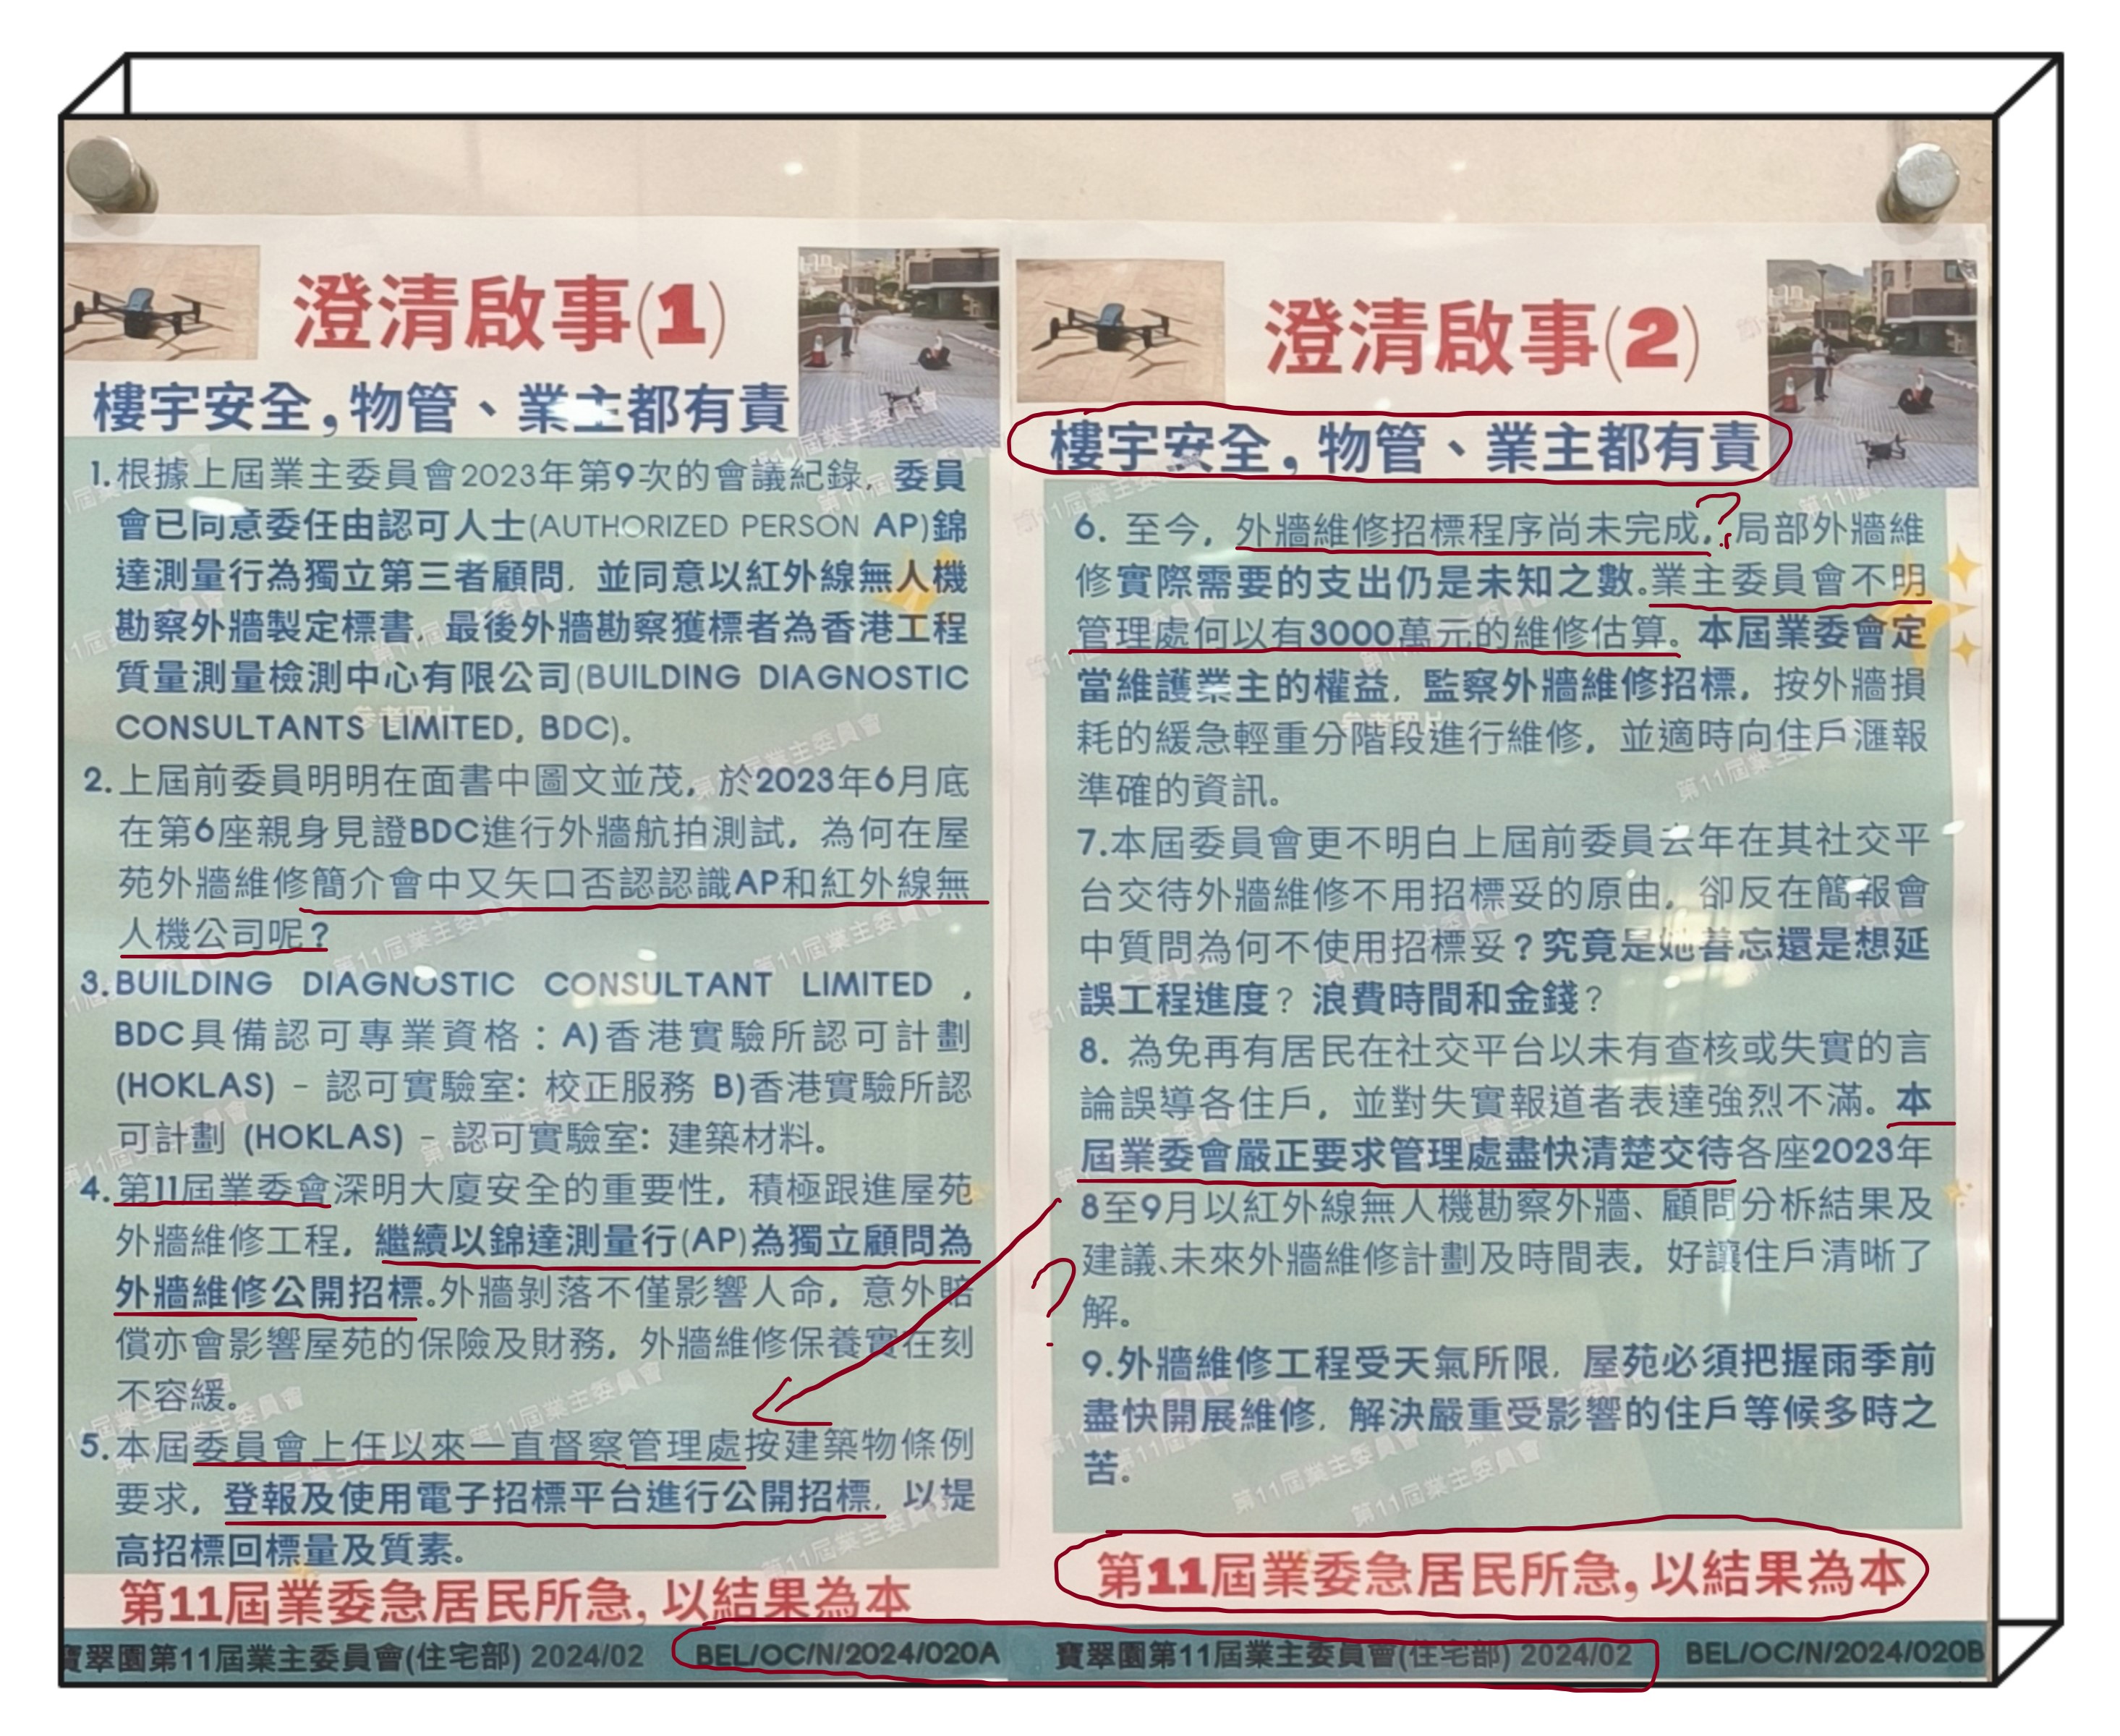 澄清啟事(1)
樓宇安全,物管、業主都有責
1.根據上屆業主委員會2023年第9次的會議紀錄, 委員
會已同意委任由認可人士(AUTHORIZED PERSON AP)錦
達測量行為獨立第三者顧問, 並同意以紅外線無人機
勘察外牆製定標書, 最後外牆勘察獲標者為香港工程
質量測量檢測中心有限公司(BUILDING DIAGNOSTIC
CONSULTANTS LIMITED, BDC)。
參考圖片
2.上屆前委員明明在面書中圖文並茂, 於2023年6月底
在第6座親身見證BDC進行外牆航拍測試, 為何在屋
苑外牆維修簡介會中又矢口否認認識AP和紅外線無
人機公司呢?
3.BUILDING DIAGNOSTIC CONSULTANT LIMITED ,
BDC具備認可專業資格：A)香港實驗所認可計劃
(HOKLAS) - 認可實驗室: 校正服務 B)香港實驗所認
可計劃 (HOKLAS) - 認可實驗室: 建築材料。
4.第11屆業委會深明大廈安全的重要性, 積極跟進屋苑
外牆維修工程, 繼續以錦達測量行(AP)為獨立顧問為
外牆維修公開招標。外牆剝落不僅影響人命, 意外賠
償亦會影響屋苑的保險及財務, 外牆維修保養實在刻
不容緩。
5.本屆委員會上任以來一直督察管理處按建築物條例
要求, 登報及使用電子招標平台進行公開招標, 以提
高招標回標量及質素。
第11屆業委急居民所急, 以結果為本
寶翠園第11屆業主委員會(住宅部) 2024/02 BEL/OC/N/2024/020A
澄清啟事(2)
樓宇安全, 物管、業主都有責
6. 至今, 外牆維修招標程序尚未完成, ? 局部外牆維
修實際需要的支出仍是未知之數。業主委員會不明
管理處何以有3000萬元的維修估算。本屆業委會定
當維護業主的權益, 監察外牆維修招標, 按外牆損
參考圖片
耗的緩急輕重分階段進行維修, 並適時向住戶滙報
準確的資訊。
7.本屆委員會更不明白上屆前委員去年在其社交平
台交待外牆維修不用招標妥的原由, 卻反在簡報會
中質問為何不使用招標妥？究竟是她善忘還是想延
誤工程進度？浪費時間和金錢？
8. 為免再有居民在社交平台以未有查核或失實的言
論誤導各住戶, 並對失實報道者表達強烈不滿。本
屆業委會嚴正要求管理處盡快清楚交待各座2023年
8至9月以紅外線無人機勘察外牆、顧問分析結果及
?
建議、未來外牆維修計劃及時間表, 好讓住戶清晰了
解。
9.外牆維修工程受天氣所限, 屋苑必須把握雨季前
盡快開展維修, 解決嚴重受影響的住戶等候多時之
苦。
第11屆業委急居民所急, 以結果為本
寶翠園第11屆業主委員會(住宅部) 2024/02 BEL/OC/N/2024/020B
第11屆業主委員會